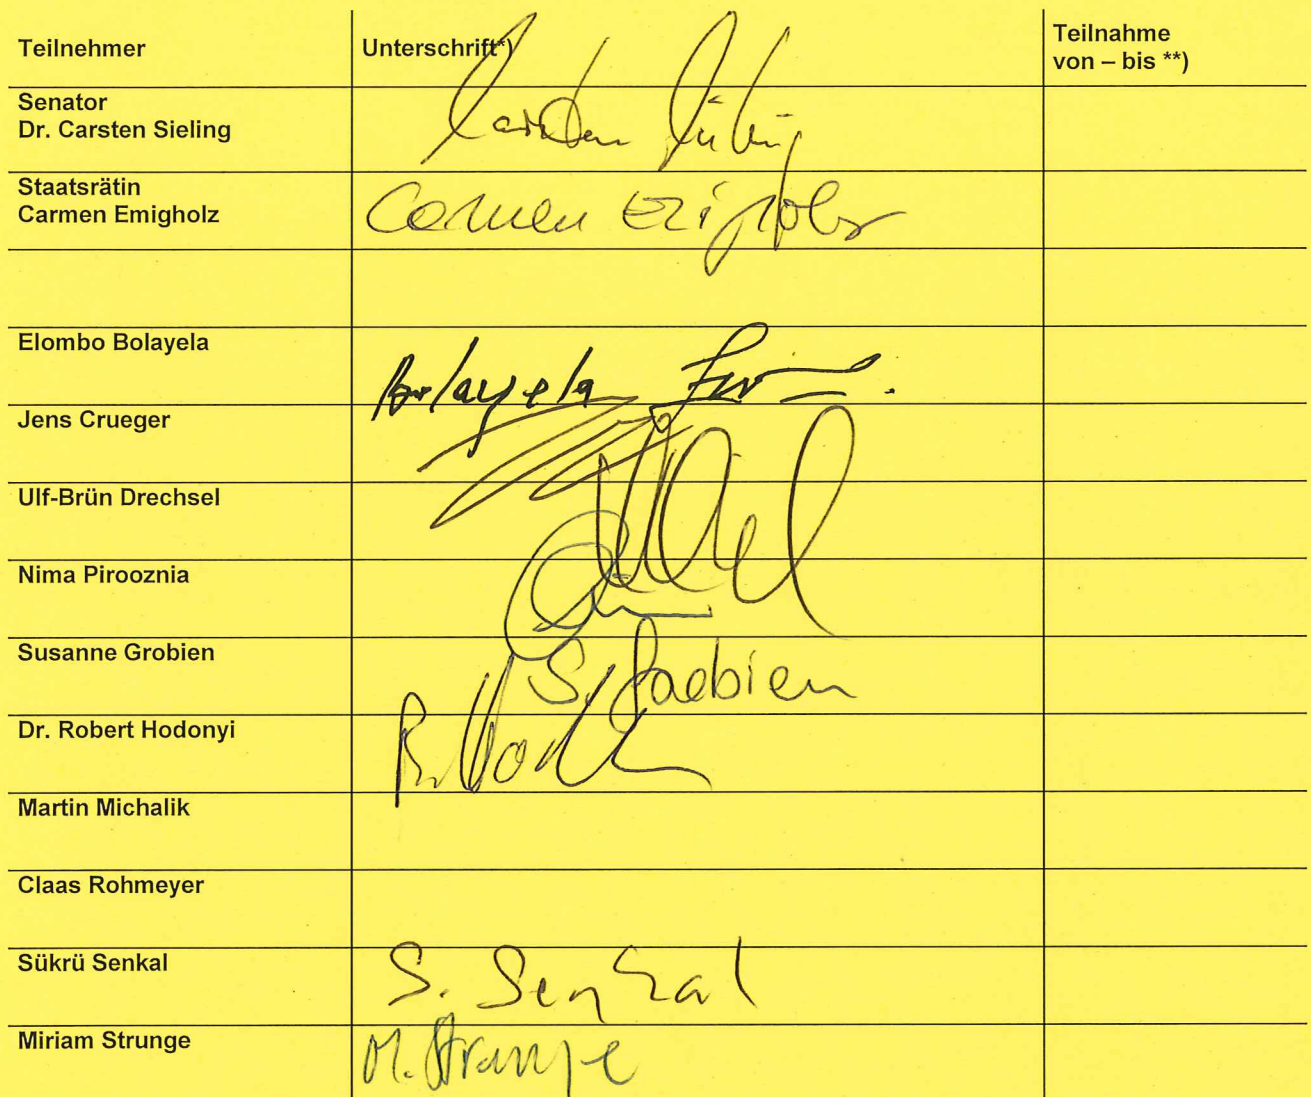 Teilnehmer Unterschrift*) Teilnahme
von – bis **)
Senator
Dr. Carsten Sieling Carsten Sieling
Staatsrätin
Carmen Emigholz Carmen Emigholz
Elombo Bolayela Bolayela
Jens Crueger
Ulf-Brün Drechsel
Nima Pirooznia
Susanne Grobien S. Grobien
Dr. Robert Hodonyi
Martin Michalik
Claas Rohmeyer
Sükrü Senkal S. Senkal
Miriam Strunge M. Strunge